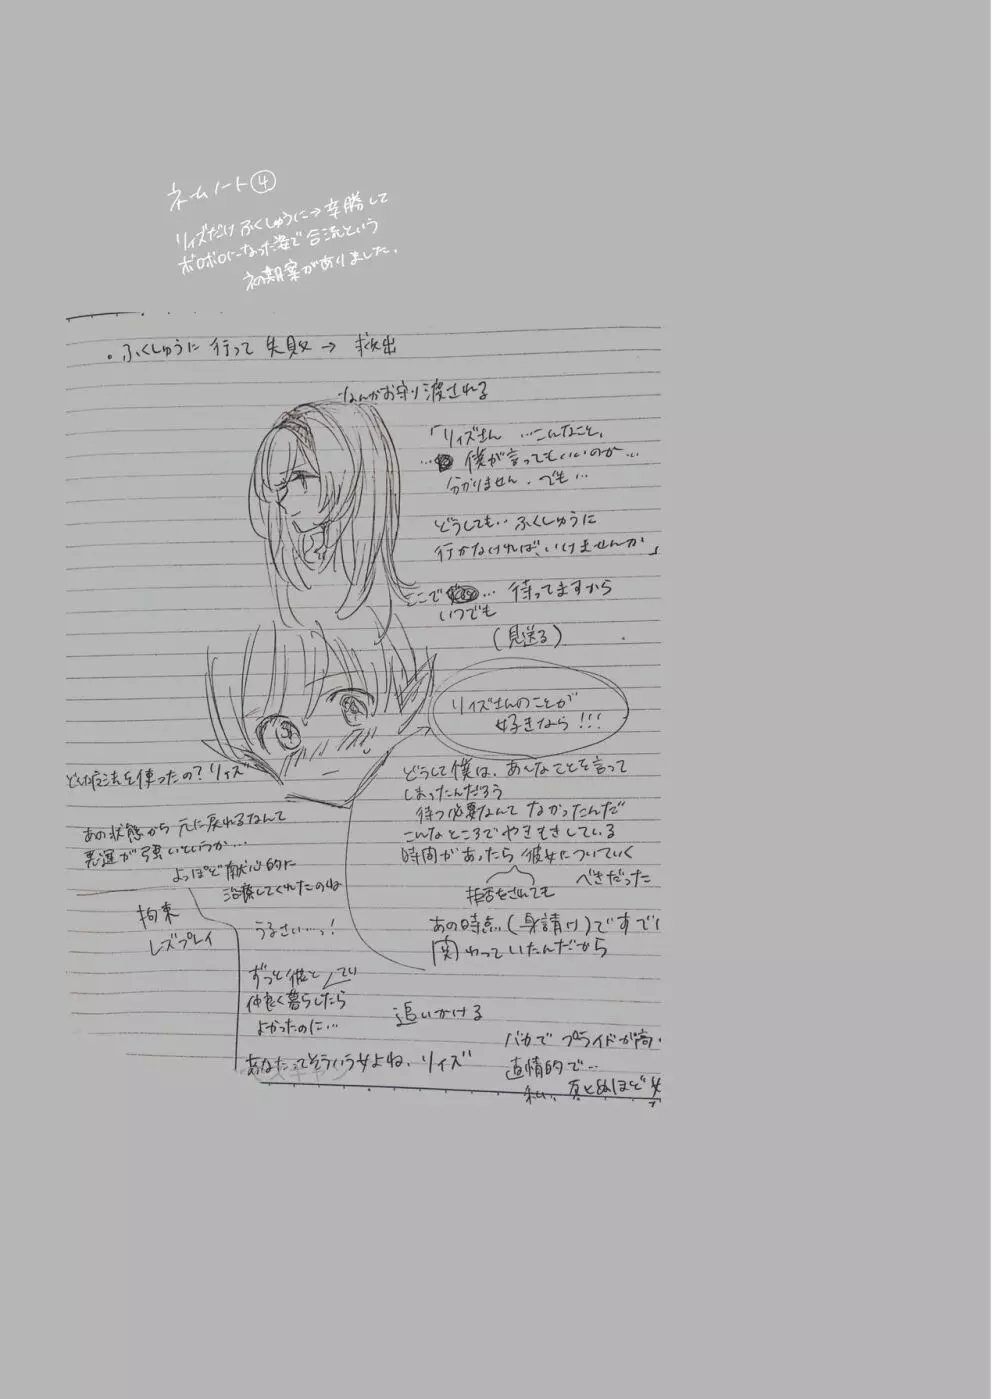 ネームノート④
リィズだけふくしゅうに→辛勝して
ボロボロになった姿で合流という
初期案がありました。
・ふくしゅうに行って失敗→救出
なんかお守り渡される
「リィズさん…こんなこと、
…僕が言ってもいいのか…
分かりません。でも…
どうしても…ふくしゅうに
行かなければ、いけませんか」
ここで…待ってますから
いつでも
(見送る)
リィズさんのことが
好きなら!!!
どうして僕は、あんなことを言って
しまったんだろう
待つ必要なんてなかったんだ
こんなところでやきもきしている
時間があったら彼女についていく
べきだった
拒否をされても
あの時点(身請け)ですでに
関わっていたんだから
追いかける
どんな方法を使ったの?リィズ
あの状態から元に戻れるなんて
悪運が強いというか…
よっぽど献心的に
治療してくれたのね
拘束
レズプレイ
うるさい…っ!
ずっと彼と
仲良く暮らしてたら
よかったのに…
あなたってそういう女よね、リィズ
バカでプライドが高い
直情的で…